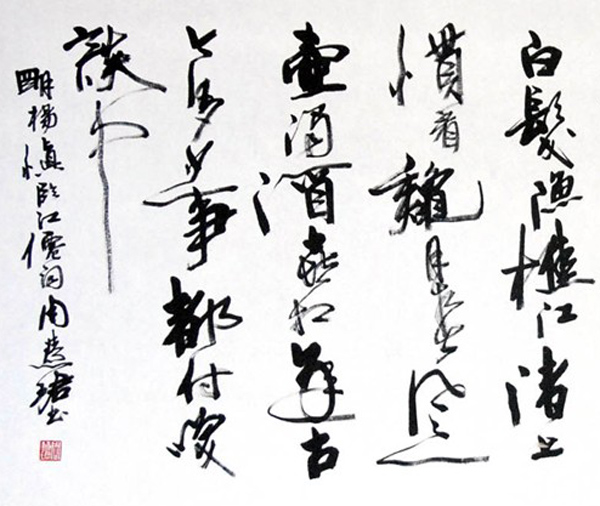 白髮漁樵江渚上
慣看龝月春風一
壺濁酒喜相逢古
今多少事都付咲
談中
明楊慎臨江僊詞周慧珺書